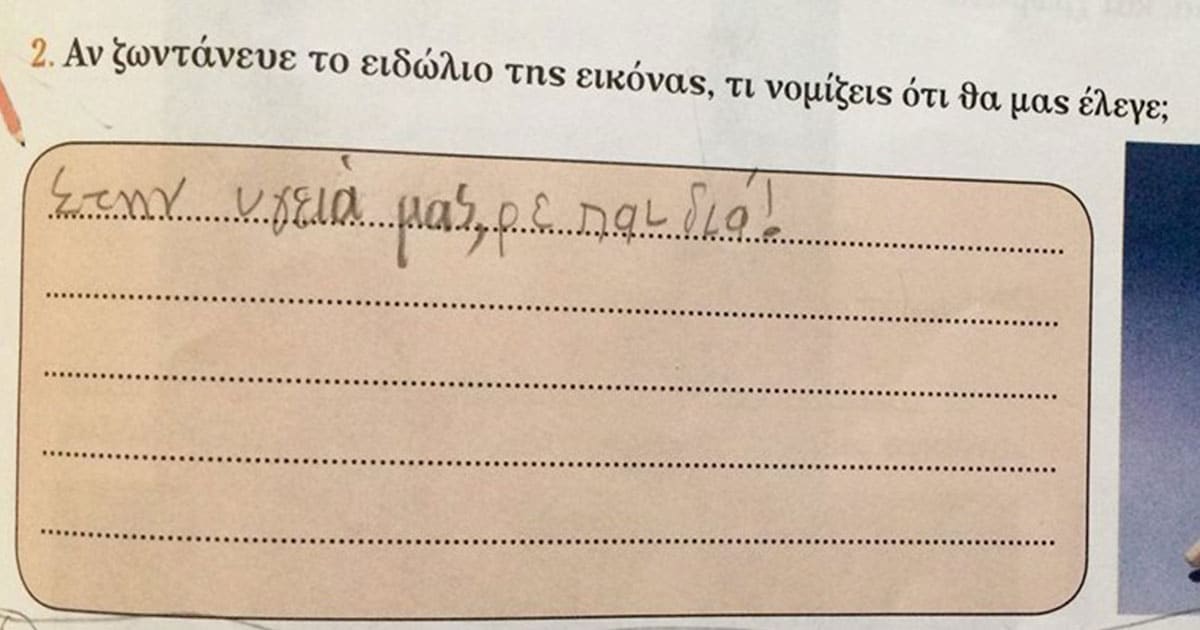 2. Αν ζωντάνευε το ειδώλιο της εικόνας, τι νομίζεις ότι θα μας έλεγε;
Στην υγειά μας, ρε παιδιά!